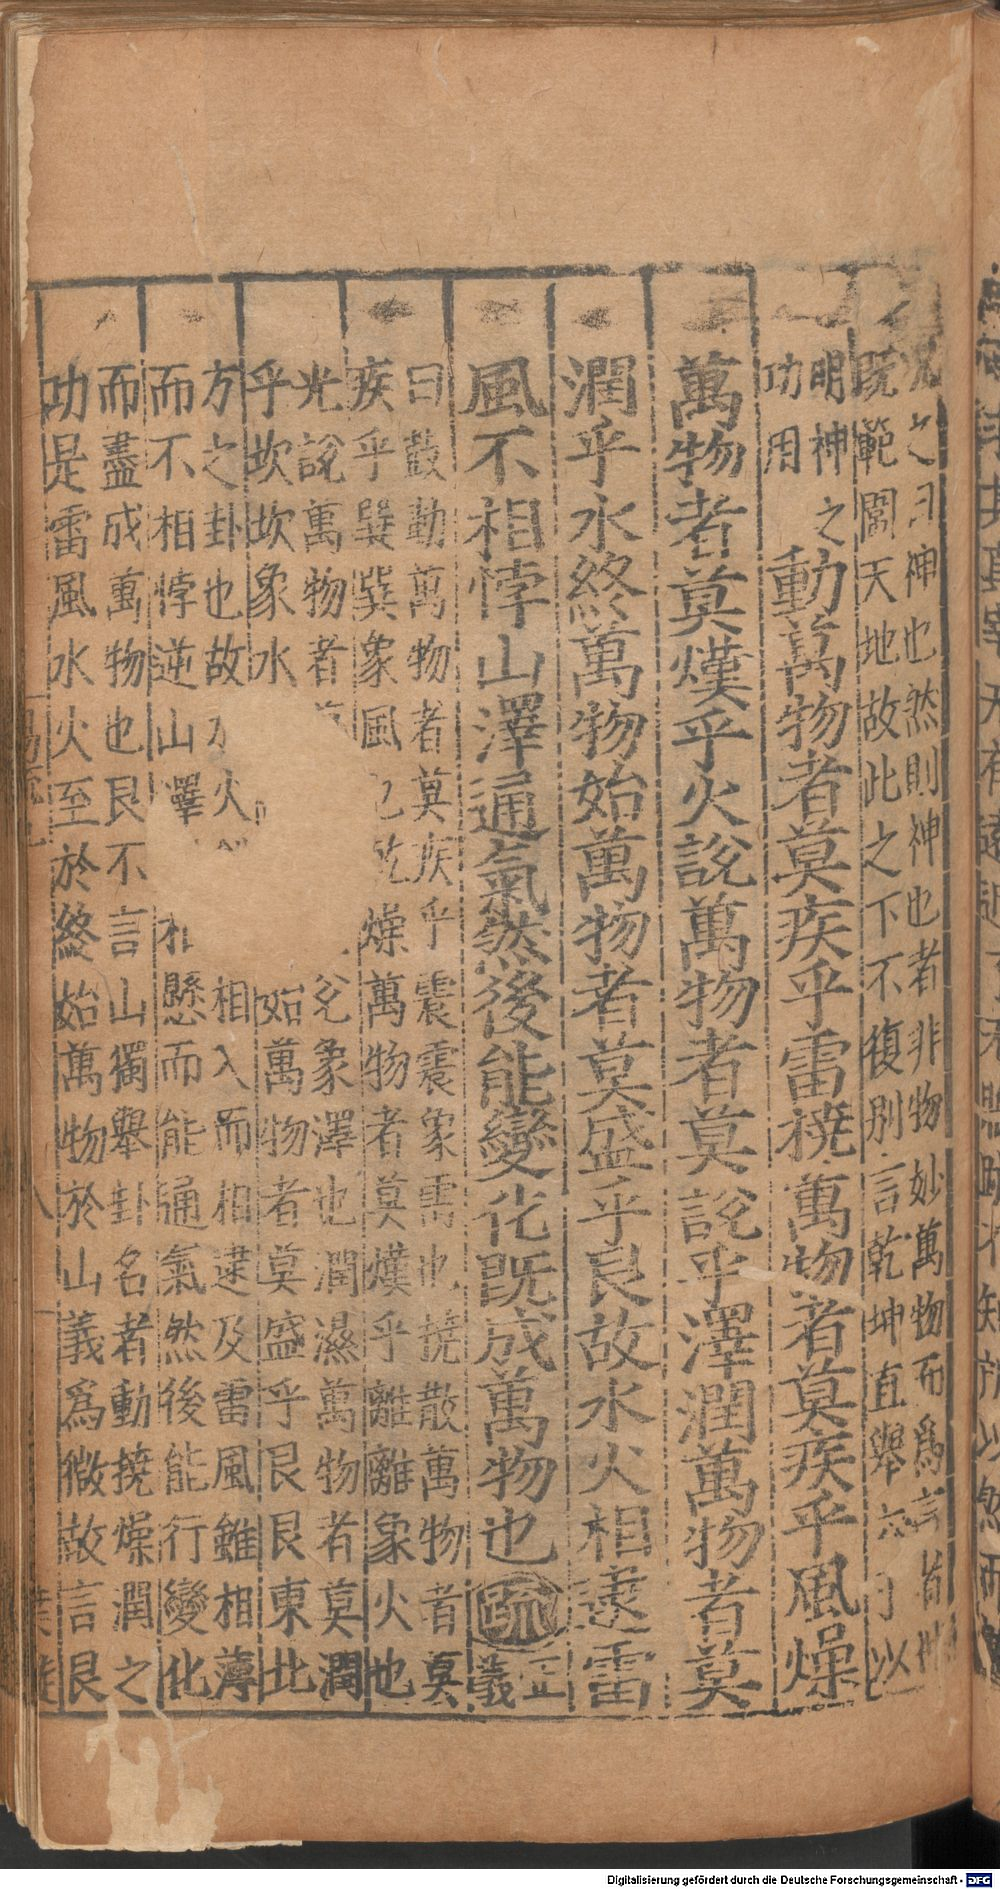 況之曰神也然則神也者非物妙萬物而爲言者
既範圍天地故此之下不復別言乾坤直舉六子以
明神之
功用
動萬物者莫疾乎雷撓萬物者莫疾乎風燥
萬物者莫熯乎火說萬物者莫說乎澤潤萬物者莫
潤乎水終萬物始萬物者莫盛乎艮故水火相逮雷
風不相悖山澤通氣然後能變化既成萬物也疏正
義
曰鼓動萬物者莫疾乎震震象雷也撓散萬物者莫
疾乎巽巽象風也乾燥萬物者莫熯乎離離象火也
光說萬物者兌象澤也潤濕萬物者莫潤
乎坎坎象水始萬物者莫盛乎艮艮東北
方之卦也故水火相入而相逮及雷風雖相薄
而不相悖逆山澤相懸而能通氣然後能行變化
而盡成萬物也艮不言山獨舉卦名者動撓燥潤之
功是雷風水火至於終始萬物於山義爲微故言艮
Digitalisierung gefördert durch die Deutsche Forschungsgemeinschaft - DFG